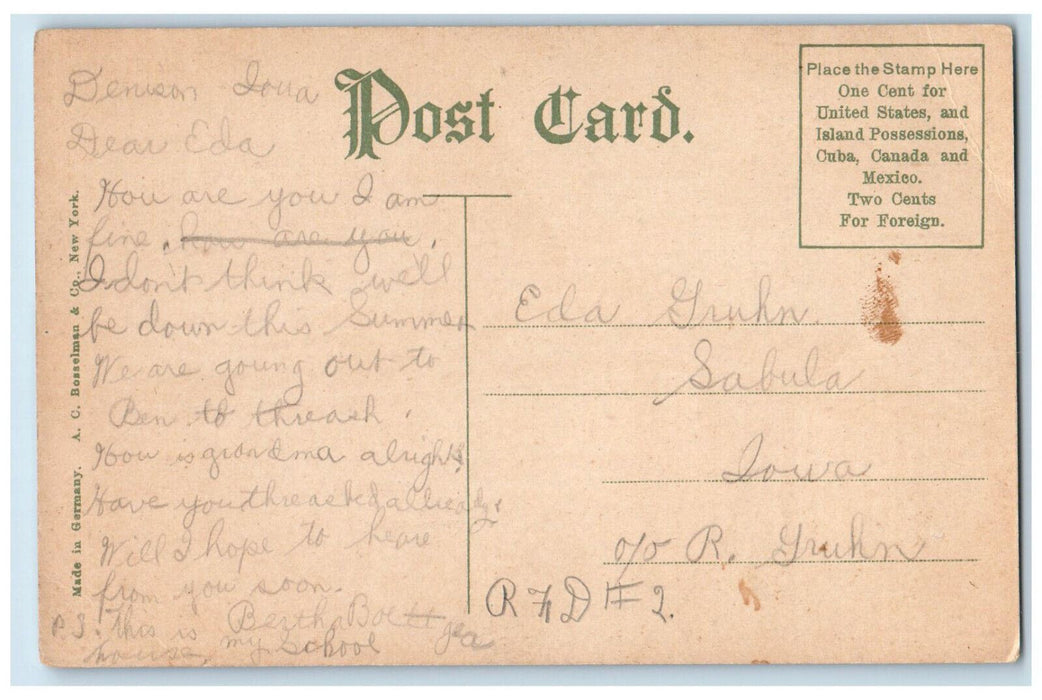 Post Card.
Place the Stamp Here
One Cent for
United States, and
Island Possessions,
Cuba, Canada and
Mexico.
Two Cents
For Foreign.
Made in Germany. A. C. Bosselman & Co., New York.
Denison Iowa
Dear Eda
How are you I am
fine. how are you.
I don't think we'll
be down this Summer
We are going out to
Ben to threash.
How is grandma alright?
Have you threashed allready?
Will I hope to heare
from you soon.
Bertha
P.S. this is my school
house.
Eda Gruhn
Sabula
Iowa
c/o R. Gruhn
R F D # 2.